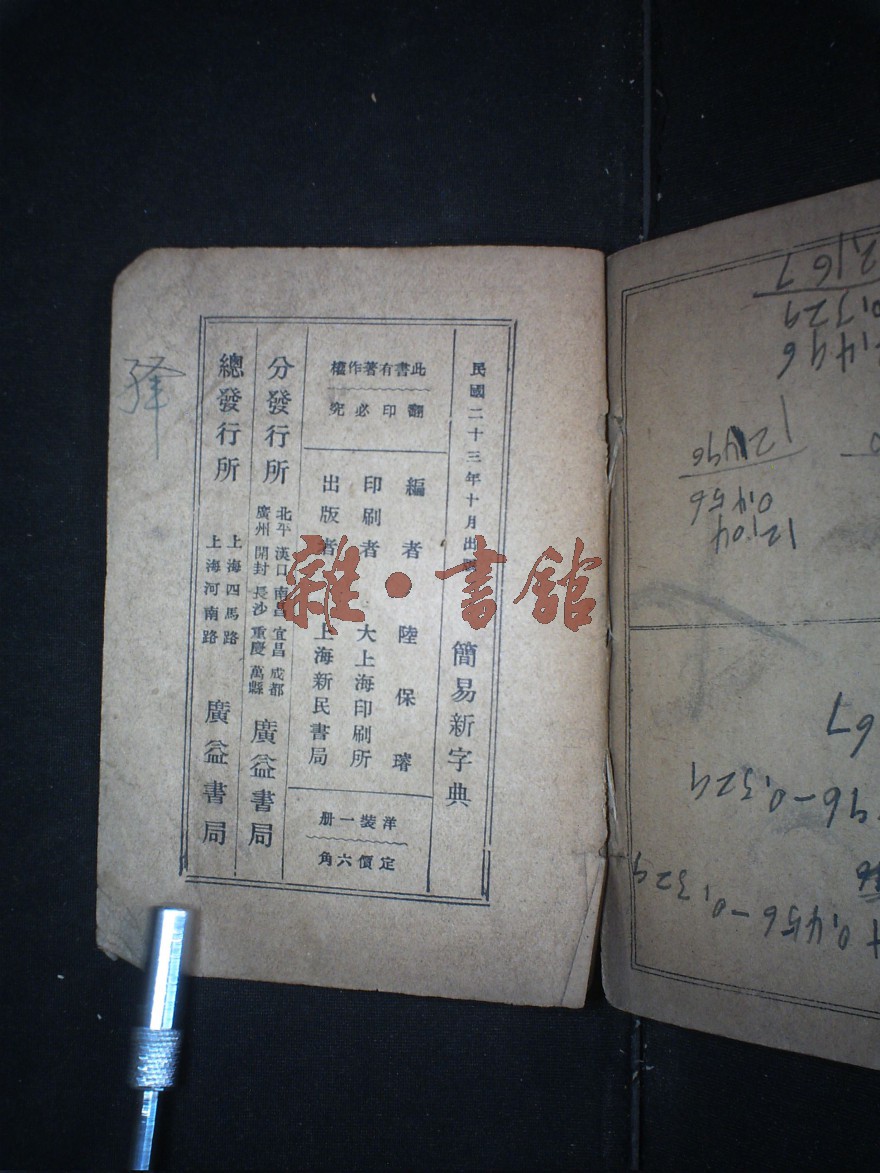 民國二十三年十月出版
簡易新字典
此書有著作權
翻印必究
編者 陸保璿
印刷者 大上海印刷所
出版者 上海新民書局
洋裝一册
定價六角
分發行所 北平 漢口 南昌 宜昌 成都
廣州 開封 長沙 重慶 萬縣 廣益書局
總發行所 上海四馬路
上海河南路 廣益書局
雜·書館
2,167
12,04
0,456
12,496
+0,456-0,329
96-0,329
67